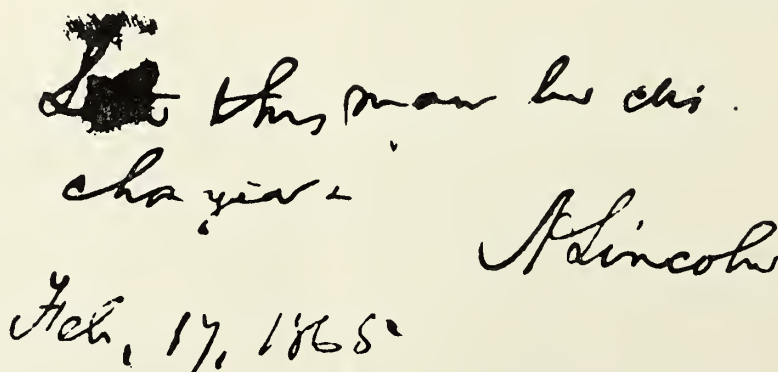 Let this man be dis-
charged.
A. Lincoln
Feb. 17, 1865.